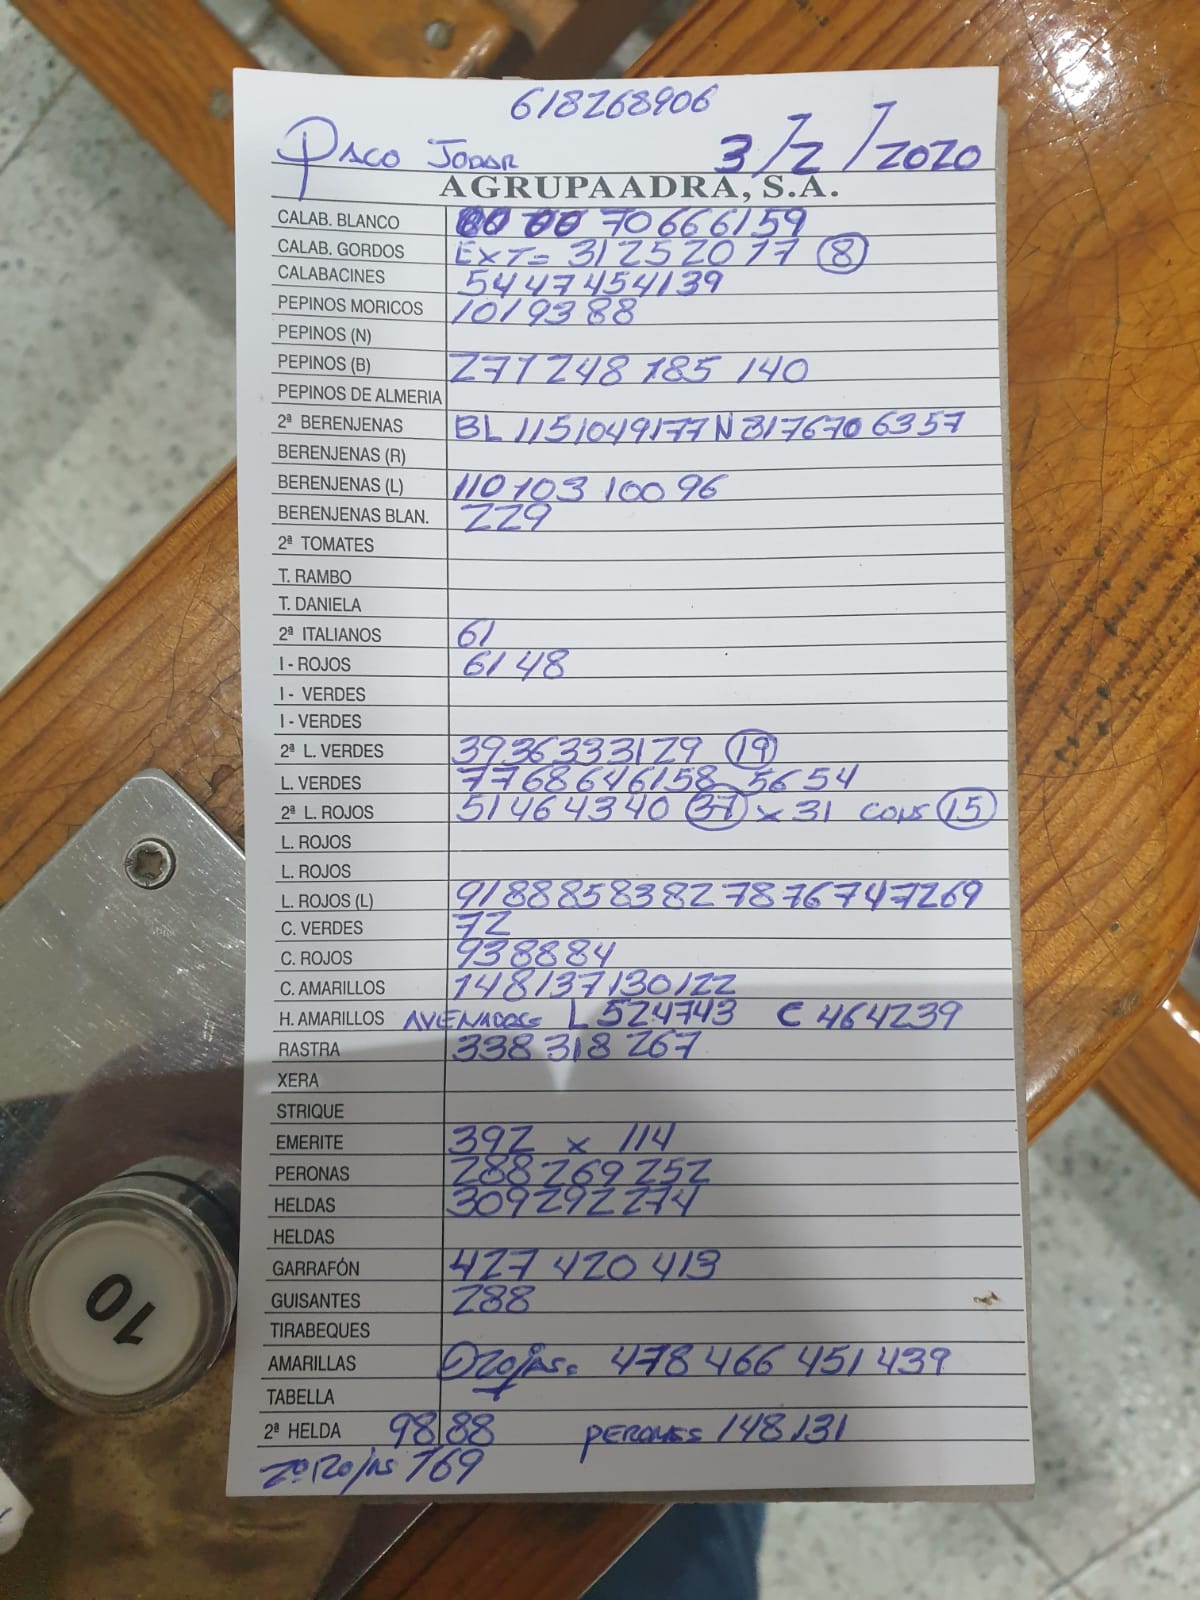 618268906
Paco Jodar 3/2/2020
AGRUPAADRA, S.A.
CALAB. BLANCO 70 66 61 59
CALAB. GORDOS EXT= 31 25 20 17 (8)
CALABACINES 54 47 45 41 39
PEPINOS MORICOS 101 93 88
PEPINOS (N)
PEPINOS (B) 271 248 185 140
PEPINOS DE ALMERIA
2ª BERENJENAS BL 115 104 91 77 N 81 76 70 63 57
BERENJENAS (R)
BERENJENAS (L) 110 103 100 96
BERENJENAS BLAN. 229
2ª TOMATES
T. RAMBO
T. DANIELA
2ª ITALIANOS 61
I - ROJOS 61 48
I - VERDES
I - VERDES
2ª L. VERDES 39 36 33 31 29 (19)
L. VERDES 77 68 64 61 58 56 54
2ª L. ROJOS 51 46 43 40 (37) x 31 cons (15)
L. ROJOS
L. ROJOS
L. ROJOS (L) 91 88 85 83 82 78 76 74 72 69
C. VERDES 72
C. ROJOS 93 88 84
C. AMARILLOS 148 137 130 122
H. AMARILLOS AVENADOS= L 52 47 43 C 46 42 39
RASTRA 338 318 267
XERA
STRIQUE
EMERITE 392 x 114
PERONAS 288 269 252
HELDAS 309 292 274
HELDAS
GARRAFÓN 427 420 413
GUISANTES 288
TIRABEQUES
AMARILLAS Rojas= 478 466 451 439
TABELLA
2ª HELDA 98 88 PERONAS 148 131
2ª Rojas 169
10